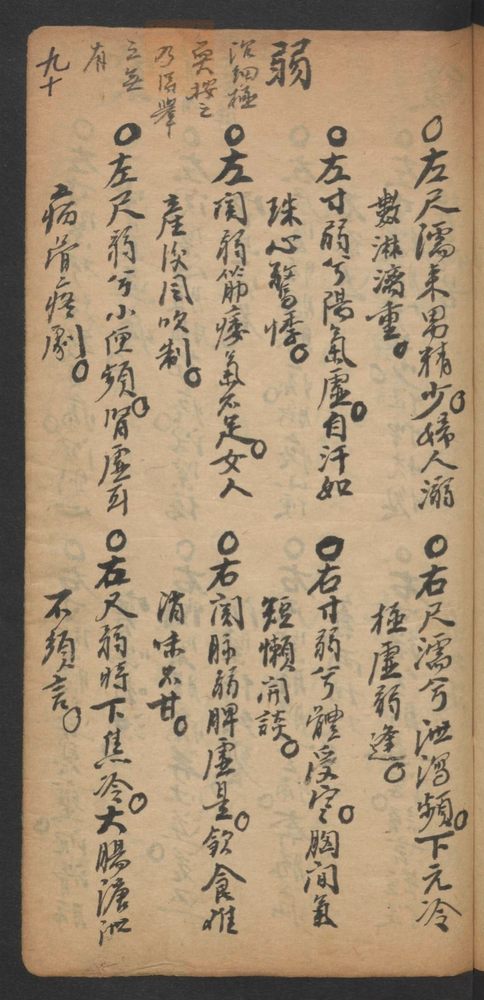 ○左尺濡來男精少○婦人溺
數淋漓重○
○右尺濡兮泄瀉頻○下元冷
極虛弱逢○
弱
沉細極
耎按之
乃得舉
之無
有
○左寸弱兮陽氣虛○自汗如
珠心驚悸○
○右寸弱兮體受寒○胸間氣
短懶開談○
○左関弱筋痿氣不足○女人
産後風吹制○
○右関脉弱脾虛是○飲食難
消味不甘○
○左尺弱兮小便頻○腎虛耳
病骨痠劇○
○右尺弱時下焦冷○大腸溏泄
不須言○
九十